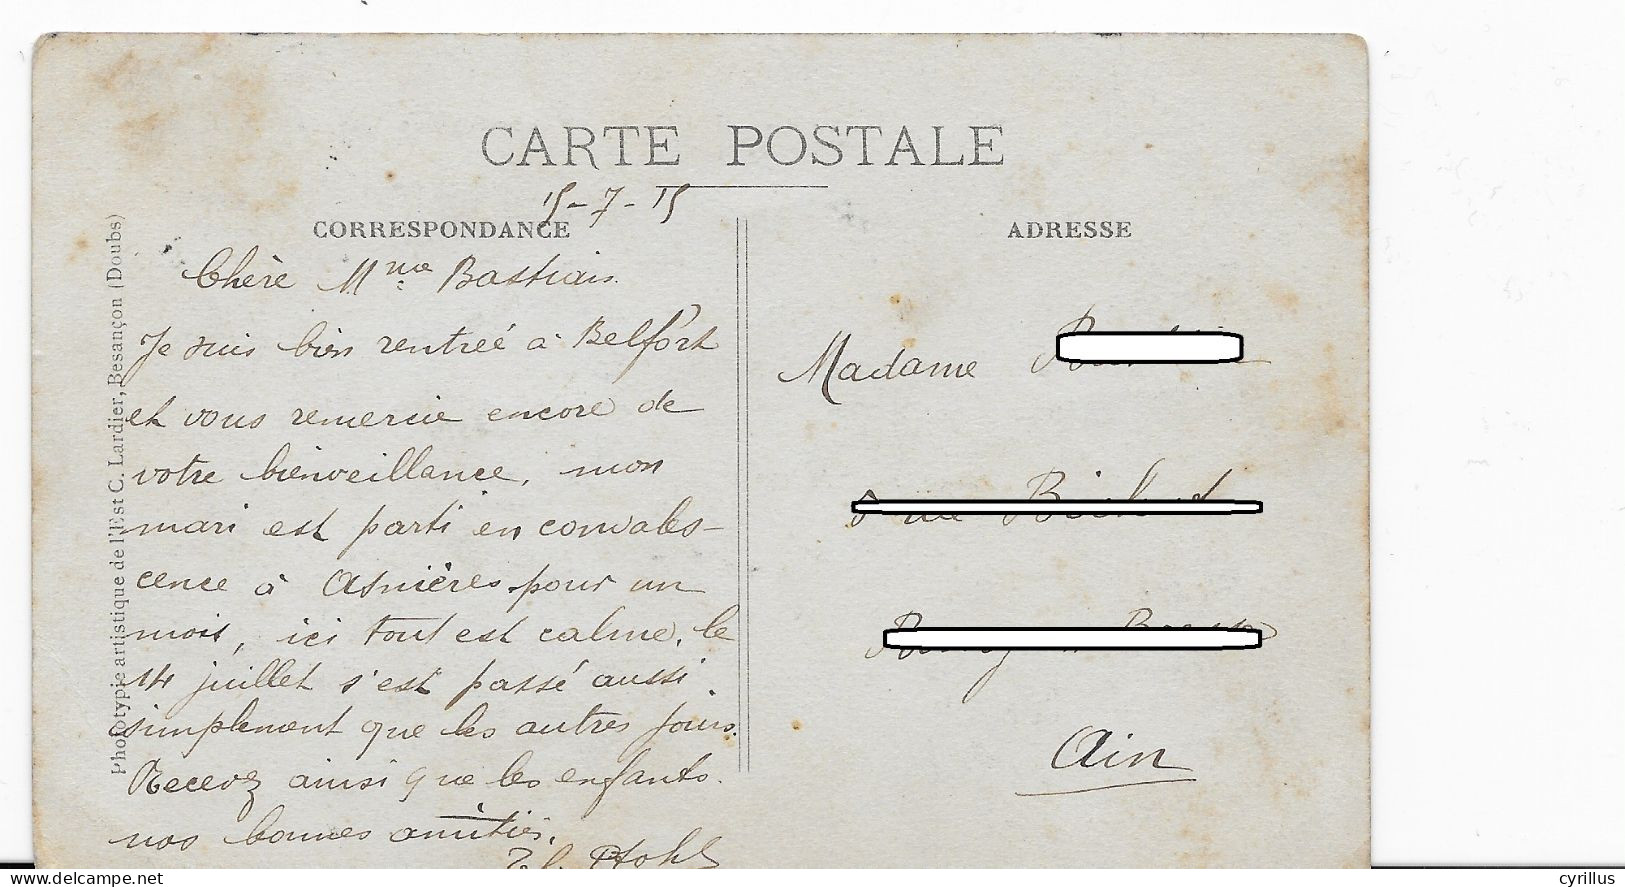 CARTE POSTALE
15-7-15
CORRESPONDANCE
Chère Mme Bastiais.
Je suis bien rentrée à Belfort
et vous remercie encore de
votre bienveillance, mon
mari est parti en convales-
cence à Asnières pour un
mois, ici tout est calme, le
14 juillet s'est passé aussi
simplement que les autres jours.
Recevez ainsi que les enfants
nos bonnes amitiés.
ADRESSE
Madame
Ain
Phototypie artistique de l'Est C. Lardier, Besançon (Doubs)
www.delcampe.net
cyrillus